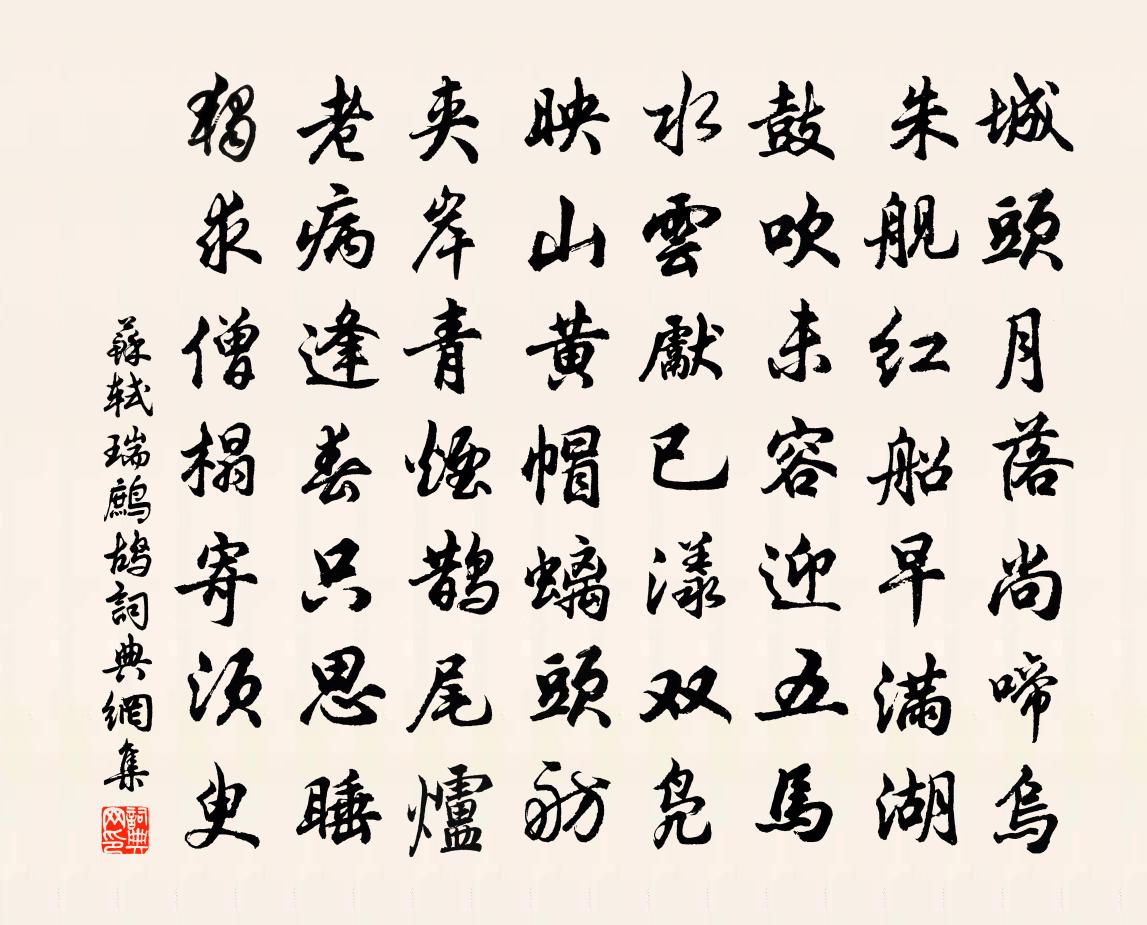 城頭月落尚啼烏
朱舰红船早满湖
鼓吹未容迎五馬
水雲獻已漾双凫
映山黄帽螭頭舫
夹岸青煙鹊尾爐
老病逢春只思睡
獨求僧榻寄须臾
蘇轼瑞鷓鸪詞典網集
詞典网印